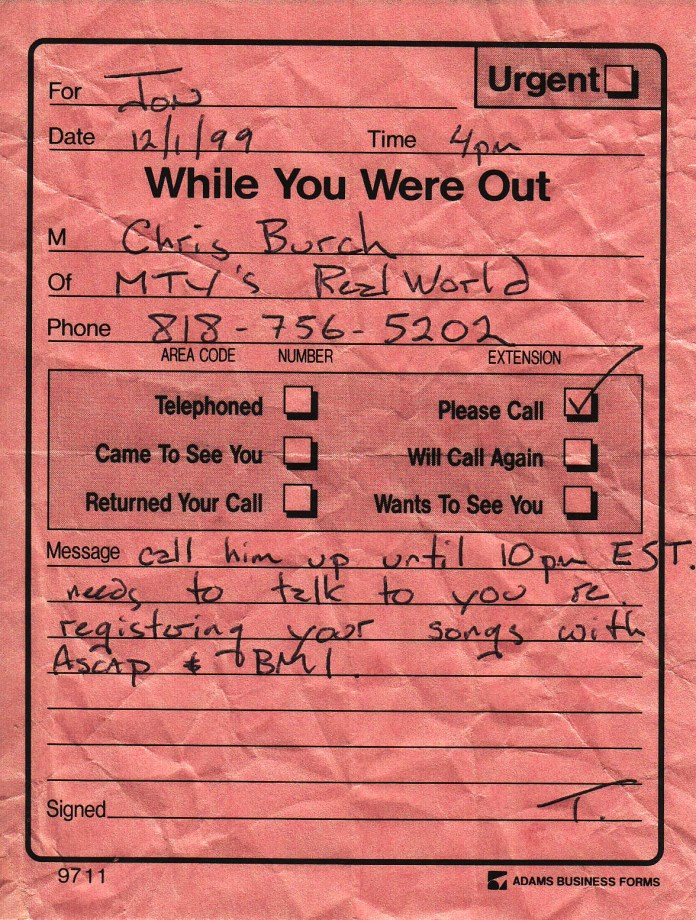 Urgent
For Jon
Date 12/1/99 Time 4pm
While You Were Out
M Chris Burch
Of MTV's Real World
Phone 818-756-5202
AREA CODE NUMBER EXTENSION
Telephoned Please Call
Came To See You Will Call Again
Returned Your Call Wants To See You
Message call him up until 10pm EST.
needs to talk to you re.
registering your songs with
ASCAP & BMI.
Signed T.
9711 ADAMS BUSINESS FORMS